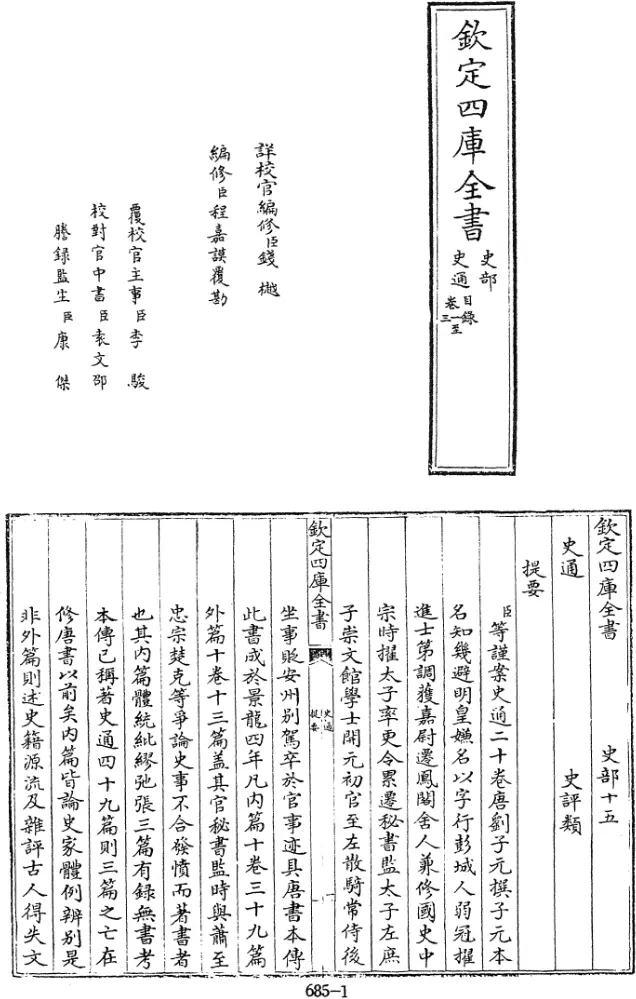 欽定四庫全書
史部
史通
目錄
卷一至
三
詳校官編修臣錢樾
編修臣程嘉謨覆勘
覆校官主事臣李駿
校對官中書臣袁文邵
謄錄監生臣康傑
欽定四庫全書 史部十五
史通 史評類
提要
臣等謹案史通二十卷唐劉子元撰子元本
名知幾避明皇嫌名以字行彭城人弱冠擢
進士第調獲嘉尉遷鳳閣舍人兼修國史中
宗時擢太子率更令累遷秘書監太子左庶
子崇文館學士開元初官至左散騎常侍後
欽定四庫全書 史通 提要 一
坐事貶安州别駕卒於官事迹具唐書本傳
此書成於景龍四年凡内篇十卷三十九篇
外篇十卷十三篇盖其官秘書監時與蕭至
忠宗楚克等爭論史事不合發憤而著書者
也其内篇體統紕繆弛張三篇有録無書考
本傳已稱著史通四十九篇則三篇之亡在
修唐書以前矣内篇皆論史家體例辨别是
非外篇則述史籍源流及雜評古人得失文
685-1